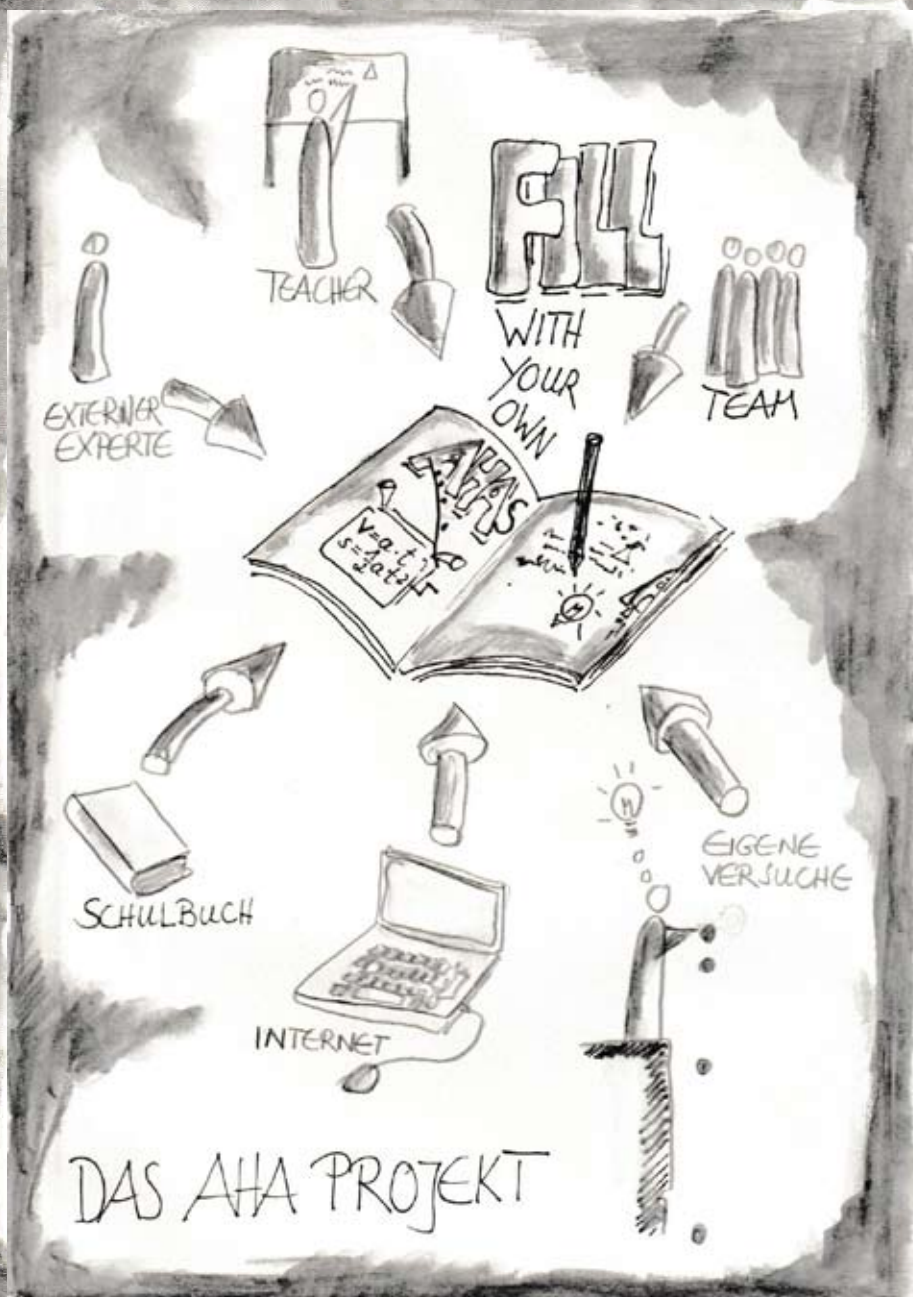 TEACHER
FILL
WITH
YOUR
OWN
TEAM
EXTERNER
EXPERTE
AHA'S
V=a.t
s=1/2at²
SCHULBUCH
INTERNET
EIGENE
VERSUCHE
DAS AHA PROJEKT